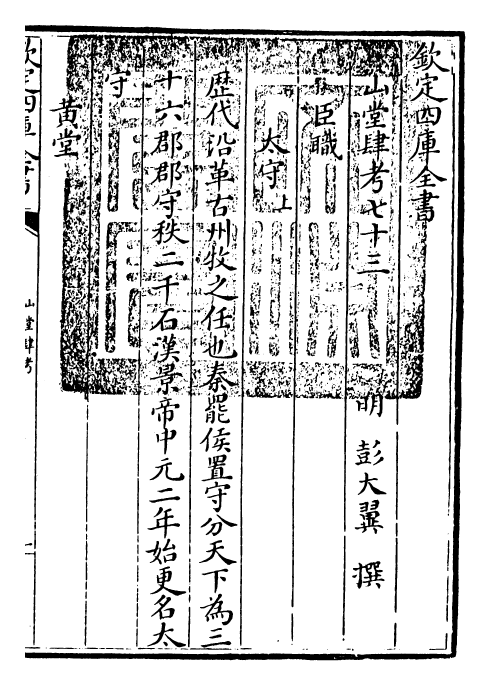 欽定四庫全書
山堂肆考七十三　明　彭大翼　撰
臣職
太守上
歴代沿革古州牧之任也秦罷侯置守分天下為三
十六郡郡守秩二千石漢景帝中元二年始更名太
守
黄堂
欽定四庫全書
山堂肆考